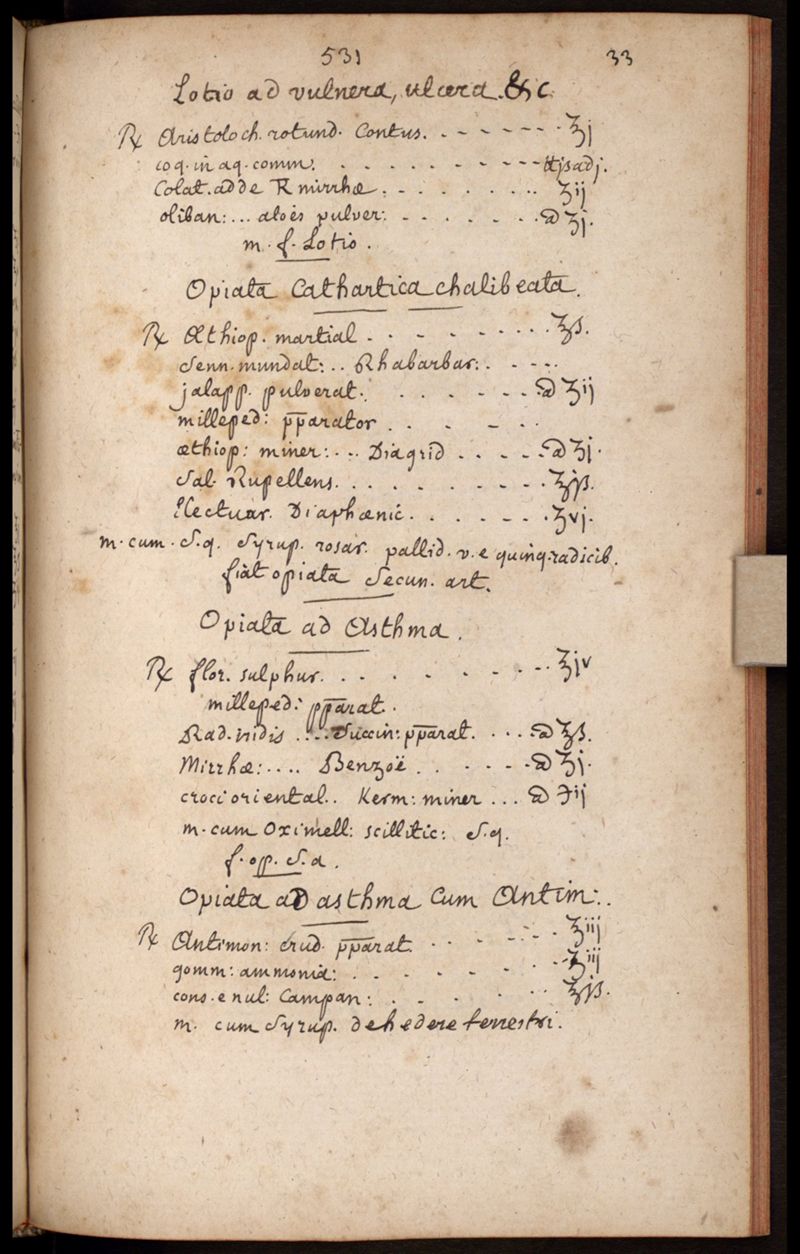 531 33
Lotio ad vulnera, ulcera. &c.
℞ Aristoloch. rotund. Contus. - - - - - - ℥j
coq. in aq. comm. - - - - - - - - ℔jß ad j.
Colat. adde ℞ mirrhæ. - - - - - - ʒij
oliban: ... aloës pulver: - - - - - - aa ʒj.
m. f. Lotio.
Opiata Cathartica chalibeata.
℞ Æthiop. martial - - - - - - ℥ß.
Senn. mundat: .. Rhabarbar: . - - -
jalapp. pulverat. . - - - - - aa ʒij
milleped: pp̄arator . . - - . .
æthiop: miner: ... Diagrid . . . - - aa ʒj.
Sal. Rupellens. . . . - - - - - ʒjß.
Electuar. Diaphœnic. . . . - - - ʒvj.
m. cum. S.q. Syrup. rosar. pallid. v. e quinq. radicib.
fiat opiata Secun. art.
Opiata ad Asthma.
℞ flor. sulphur. . . - - - - - - ʒjv
milleped: pp̄arat. .
Rad. iridis .... Succin: pp̄arat. . . . aa ʒß.
Mirrhæ: .... Benzoë . . - - - - aa ʒj.
croci oriental. . Kerm: miner ... aa ℈ij
m. cum Oximell: scillitic: S.q.
f. op. S.a.
Opiata ad asthma Cum Antim: . .
℞ Antimon: crud. pp̄arat. . . - - - - ʒiij
gomm: ammonia: . . - - - - - - ʒiij
cons. enul: Campan: . . - - - - ʒjß.
m. cum Syrup. de hedere terrestri.